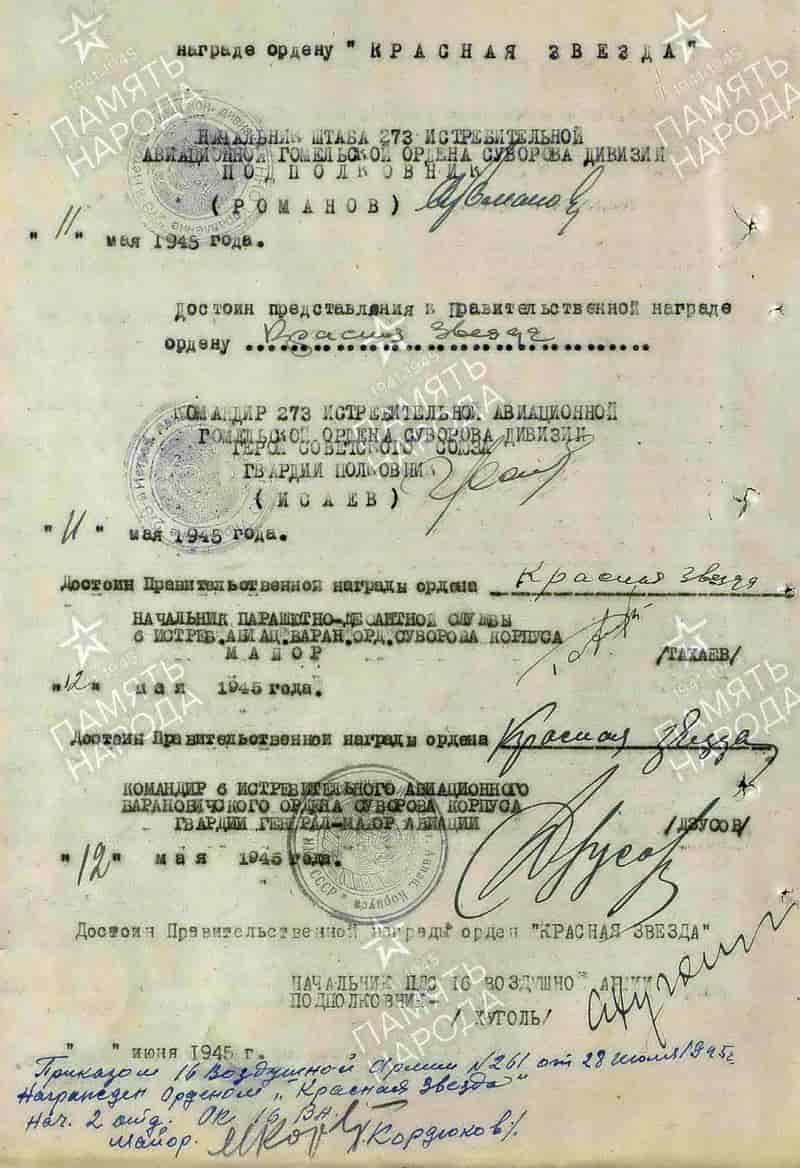 награде ордену "КРАСНАЯ ЗВЕЗДА"
НАЧАЛЬНИК ШТАБА 273 ИСТРЕБИТЕЛЬНОЙ
АВИАЦИОННОЙ ГОМЕЛЬСКОЙ ОРДЕНА СУВОРОВА ДИВИЗИИ
ПОДПОЛКОВНИК
(РОМАНОВ)
"11" мая 1945 года.
Достоин представления к Правительственной награде
ордену Красная Звезда
КОМАНДИР 273 ИСТРЕБИТЕЛЬНОЙ АВИАЦИОННОЙ
ГОМЕЛЬСКОЙ ОРДЕНА СУВОРОВА ДИВИЗИИ
ГЕРОЙ СОВЕТСКОГО СОЮЗА
ГВАРДИИ ПОЛКОВНИК
(ИСАЕВ)
"11" мая 1945 года.
Достоин Правительственной награды ордена Красная звезда
НАЧАЛЬНИК ПАРАШЮТНО-ДЕСАНТНОЙ СЛУЖБЫ
6 ИСТРЕБ.АВИАЦ.БАРАН.ОРД.СУВОРОВА КОРПУСА
МАЙОР /ТАХАЕВ/
"12" мая 1945 года.
Достоин Правительственной награды ордена Красная звезда
КОМАНДИР 6 ИСТРЕБИТЕЛЬНОГО АВИАЦИОННОГО
БАРАНОВИЧСКОГО ОРДЕНА СУВОРОВА КОРПУСА
ГВАРДИИ ГЕНЕРАЛ-МАЙОР АВИАЦИИ /ДЗУСОВ/
"12" мая 1945 года.
Достоин Правительственной награды орден "КРАСНАЯ ЗВЕЗДА"
НАЧАЛЬНИК ПДС 16 ВОЗДУШНОЙ АРМИИ
ПОДПОЛКОВНИК-
/ХУГОЛЬ/
" " июня 1945 г.
Приказом 16 Воздушной Армии №261 от 28 июля 1945г
Награжден Орденом "Красная Звезда"
Нач. 2 отд. ОК 16 ВА
Майор. /Кордюков/.
ПАМЯТЬ НАРОДА
1941-1945